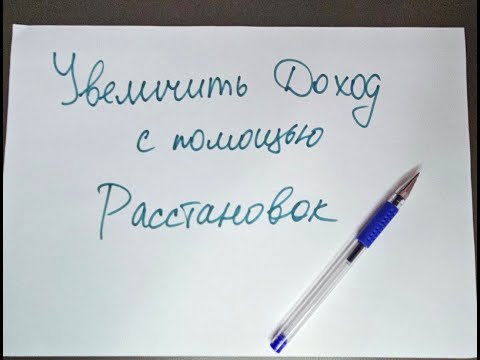 Увеличить Доход
с помощью
Расстановок